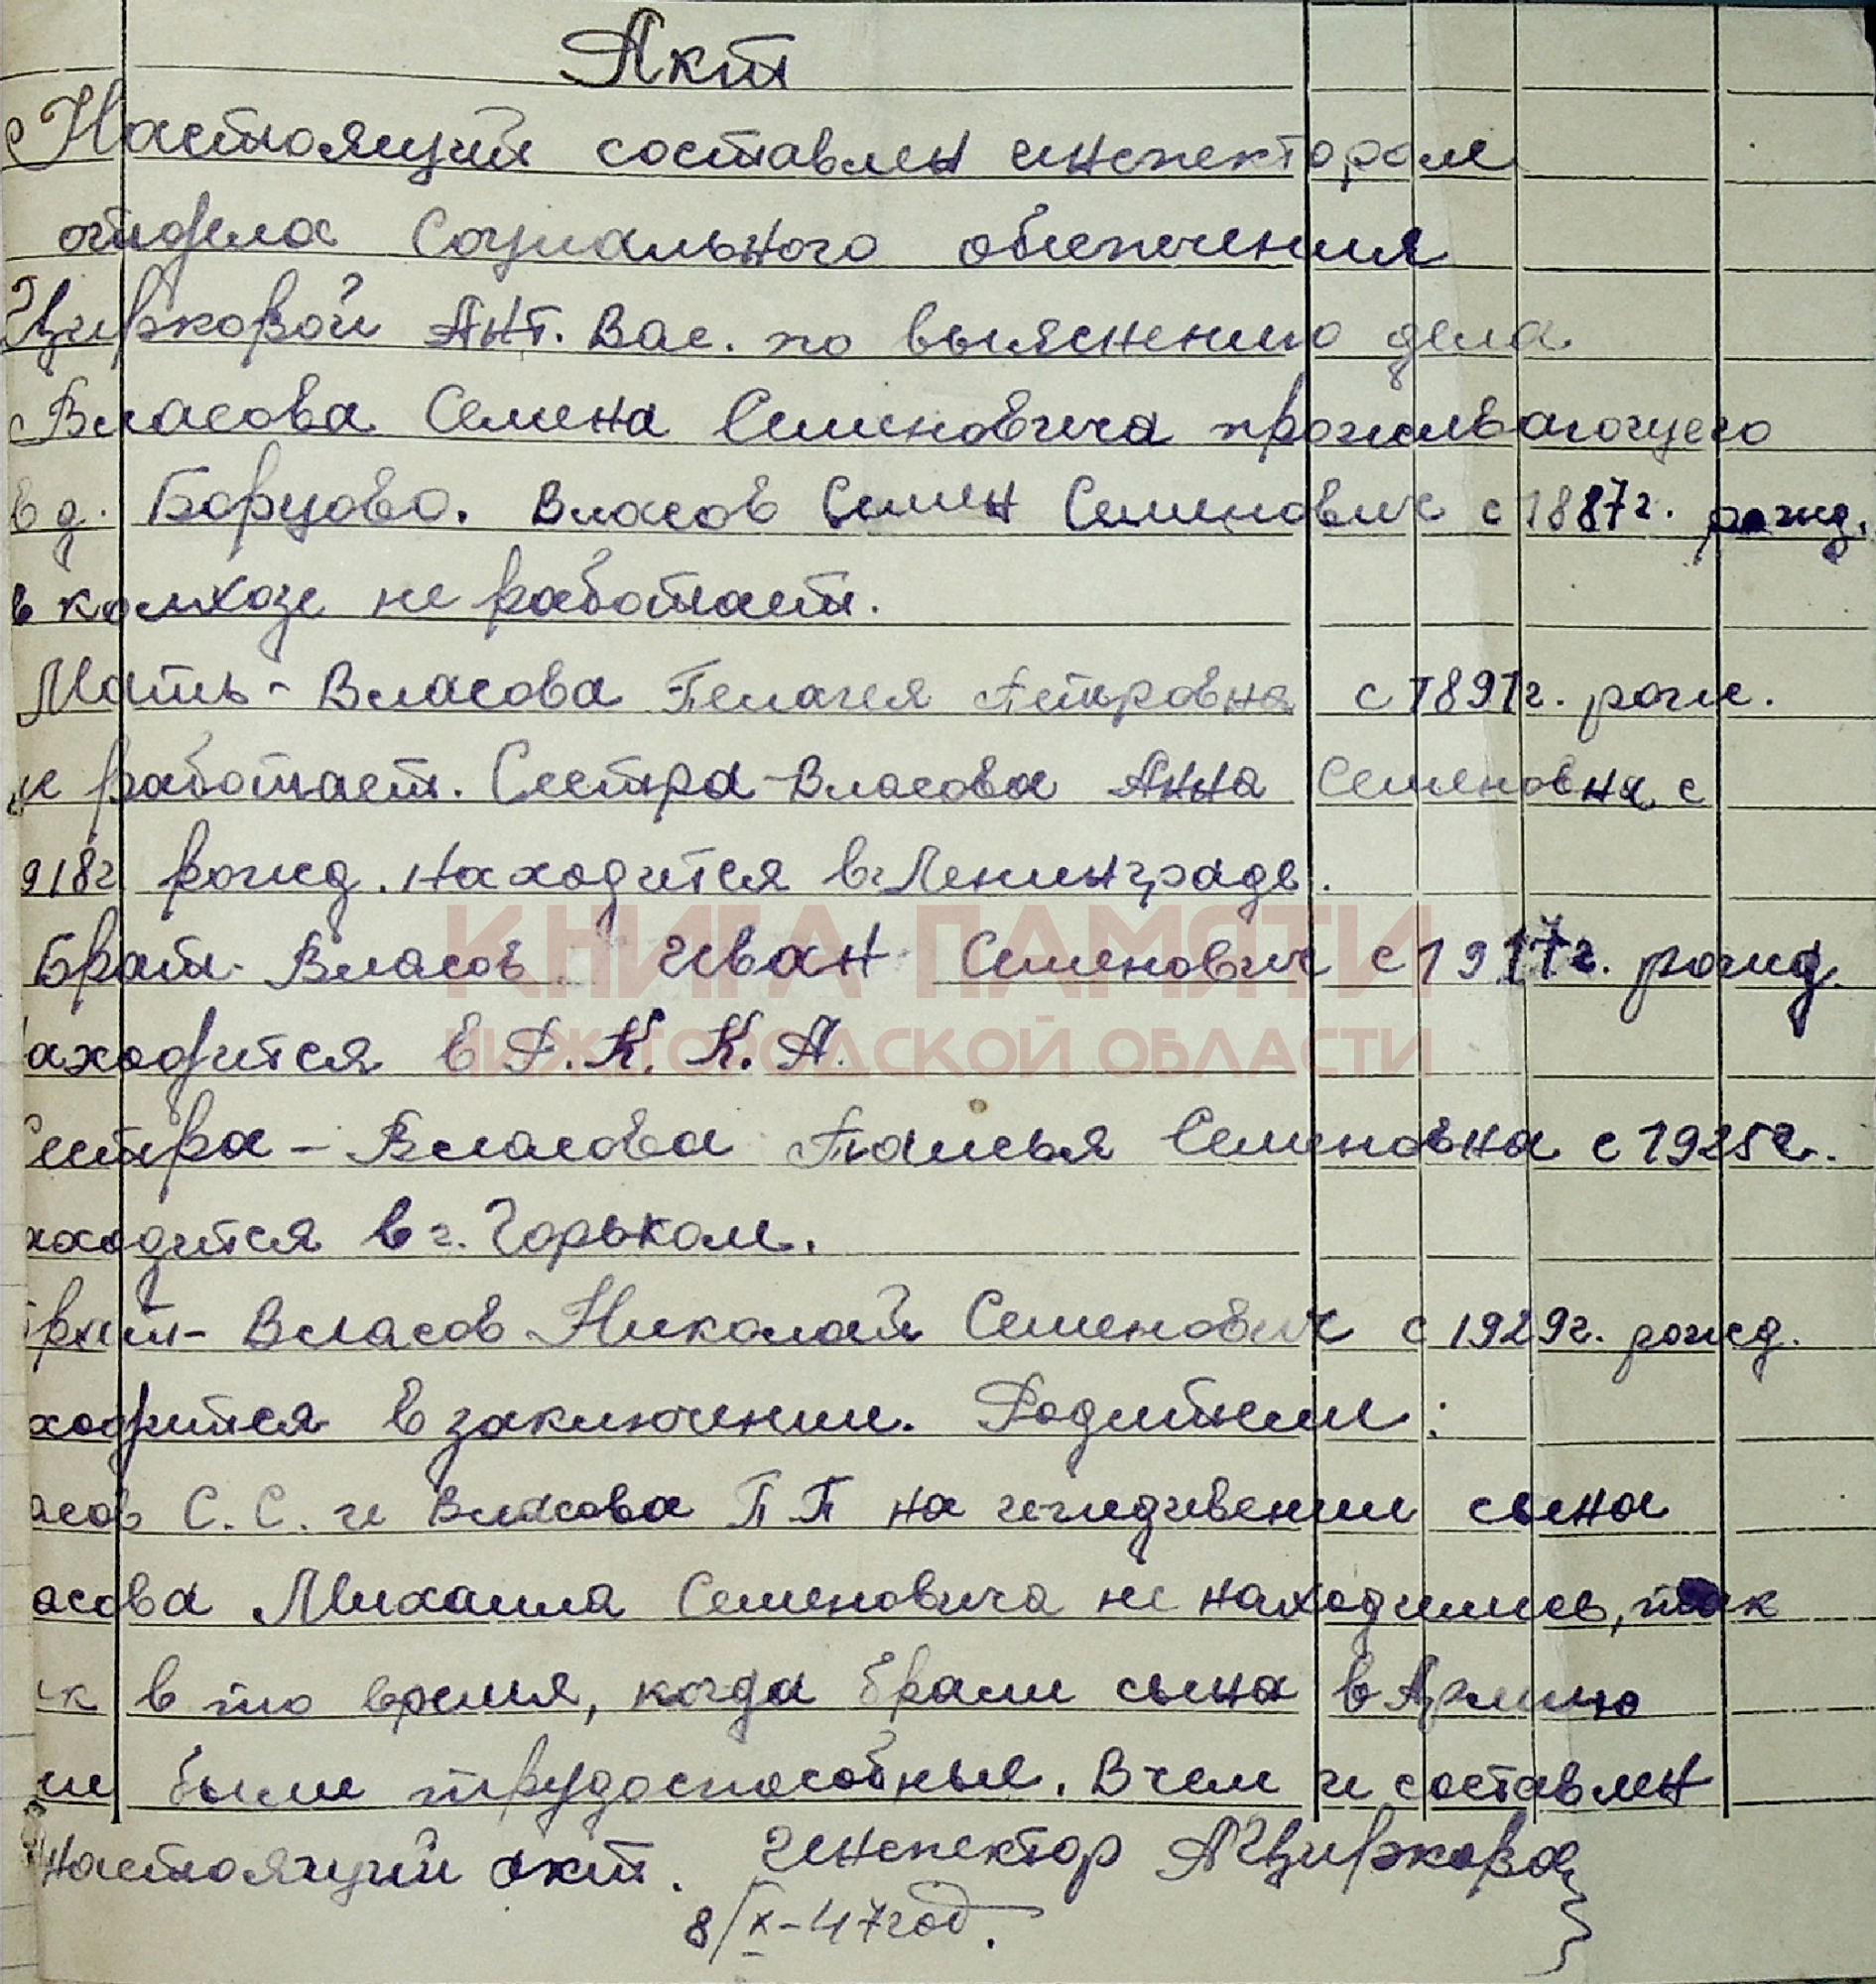 Акт
Настоящий составлен инспектором
отдела Социального обеспечения
Цирковой Ант. Вас. по выяснению дела
Власова Семена Семеновича проживающего
в д. Борцово. Власов Семен Семенович с 1887г. рожд.
в колхозе не работает.
Мать - Власова Пелагея Петровна с 1891г. рож.
не работает. Сестра - Власова Анна Семеновна с
918г рожд. находится в Ленинграде.
Брат - Власов Иван Семенович с 1917г. рожд.
КНИГА ПАМЯТИ
НИЖЕГОРОДСКОЙ ОБЛАСТИ
аходится в Р.К.К.А.
Сестра - Власова Семеновна с 1925г.
аходится в г. Горьком.
брат - Власов Николай Семенович с 1929г. рожд.
ходится в заключении. Родители:
асов С.С. и Власова П П на иждивении сына
асова Михаила Семеновича не находились, так
к в то время, когда брали сына в Армию
и были трудоспособные. В чем и составлен
настоящий акт. Инспектор АЦиркова
8/X-47год.